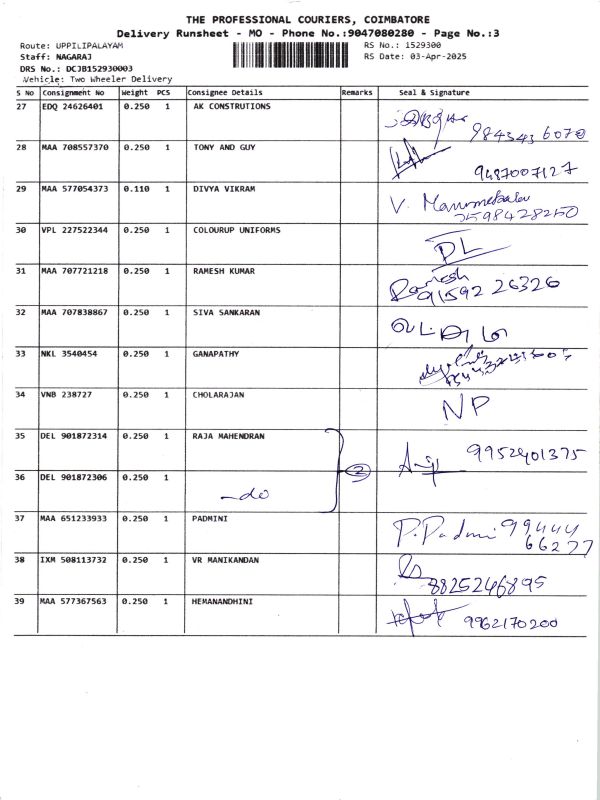 THE PROFESSIONAL COURIERS, COIMBATORE
Delivery Runsheet - MO - Phone No.:9047080280 - Page No.:3
Route: UPPILIPALAYAM RS No.: 1529300
Staff: NAGARAJ RS Date: 03-Apr-2025
DRS No.: DCJB152930003
Vehicle: Two Wheeler Delivery
S No Consignment No Weight PCS Consignee Details Remarks Seal & Signature
27 EDQ 24626401 0.250 1 AK CONSTRUTIONS
984343 6070
28 MAA 708557370 0.250 1 TONY AND GUY
9487007127
29 MAA 577054373 0.110 1 DIVYA VIKRAM V.
30 VPL 227522344 0.250 1 COLOURUP UNIFORMS DL
31 MAA 707721218 0.250 1 RAMESH KUMAR Ramesh
91592 26326
32 MAA 707838867 0.250 1 SIVA SANKARAN
33 NKL 3540454 0.250 1 GANAPATHY
34 VNB 238727 0.250 1 CHOLARAJAN NP
35 DEL 901872314 0.250 1 RAJA MAHENDRAN 9952401375
2
36 DEL 901872306 0.250 1
-do
37 MAA 651233933 0.250 1 PADMINI P. Padmini 99444
66277
38 IXM 508113732 0.250 1 VR MANIKANDAN
8825246895
39 MAA 577367563 0.250 1 HEMANANDHINI 9962170200